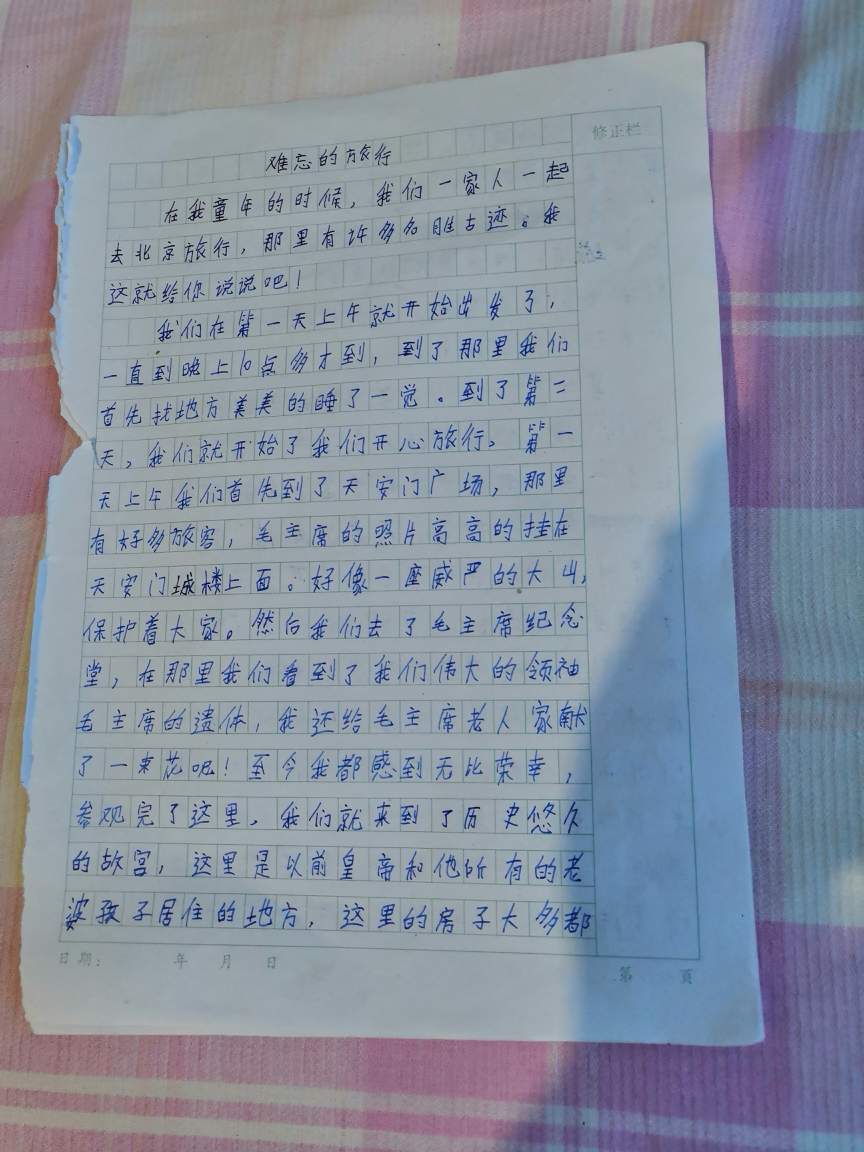 修正栏
难忘的旅行
在我童年的时候，我们一家人一起
去北京旅行，那里有许多名胜古迹。我
这就给你说说吧！
我们在第一天上午就开始出发了，
一直到晚上10点多才到，到了那里我们
首先找地方美美的睡了一觉。到了第二
天，我们就开始了我们开心旅行。第一
天上午我们首先到了天安门广场，那里
有好多旅客，毛主席的照片高高的挂在
天安门城楼上面。好像一座威严的大山，
保护着大家。然后我们去了毛主席纪念
堂，在那里我们看到了我们伟大的领袖
毛主席的遗体，我还给毛主席老人家献
了一束花呢！至今我都感到无比荣幸，
参观完了这里，我们就来到了历史悠久
的故宫，这里是以前皇帝和他所有的老
婆孩子居住的地方，这里的房子大多都
日期： 年 月 日
第 页